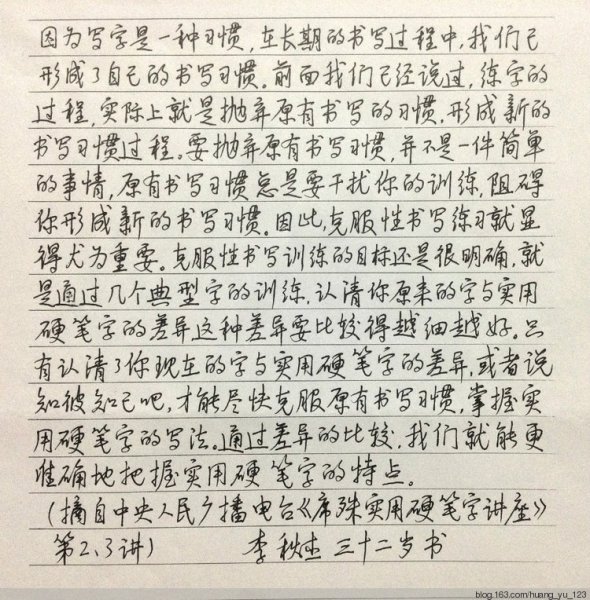 因为写字是一种习惯,在长期的书写过程中,我们已
形成了自己的书写习惯。前面我们已经说过,练字的
过程,实际上就是抛弃原有书写的习惯,形成新的
书写习惯过程。要抛弃原有书写习惯,并不是一件简单
的事情,原有书写习惯总是要干扰你的训练,阻碍
你形成新的书写习惯。因此,克服性书写练习就显
得尤为重要。克服性书写训练的目标还是很明确,就
是通过几个典型字的训练,认清你原来的字与实用
硬笔字的差异这种差异要比较得越细越好。只
有认清了你现在的字与实用硬笔字的差异,或者说
知彼知己吧,才能尽快克服原有书写习惯,掌握实
用硬笔字的写法。通过差异的比较,我们就能更
准确地把握实用硬笔字的特点。
(摘自中央人民广播电台《席殊实用硬笔字讲座》
第2、3讲) 李秋杰 三十二岁书
blog.163.com/huang_yu_123